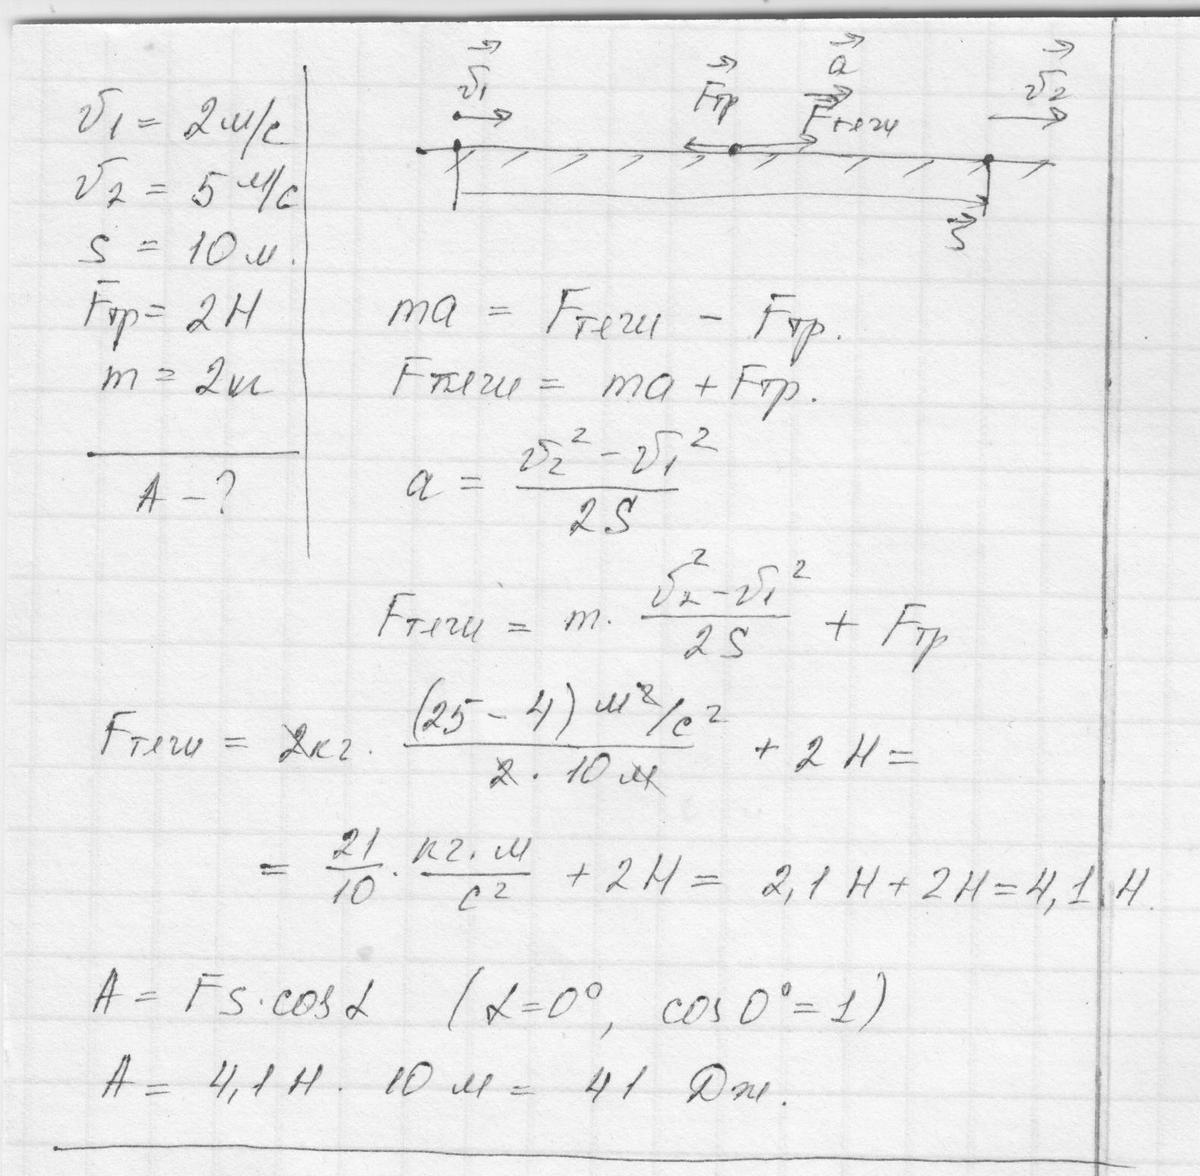 v₁ = 2 м/с
v₂ = 5 м/с
s = 10 м.
Fтр = 2 Н
m = 2 кг
A – ?
v⃗₁ F⃗тр a⃗ F⃗тяги v⃗₂
s⃗
ma = Fтяги – Fтр.
Fтяги = ma + Fтр.
a = (v₂² – v₁²) / 2S
Fтяги = m · (v₂² – v₁²) / 2S + Fтр
Fтяги = 2кг · (25 – 4) м²/с² / 2 · 10 м + 2 Н =
= 21/10 · кг · м / с² + 2 Н = 2,1 Н + 2 Н = 4,1 Н.
A = Fs · cos α (α = 0°, cos 0° = 1)
A = 4,1 Н · 10 м = 41 Дж.